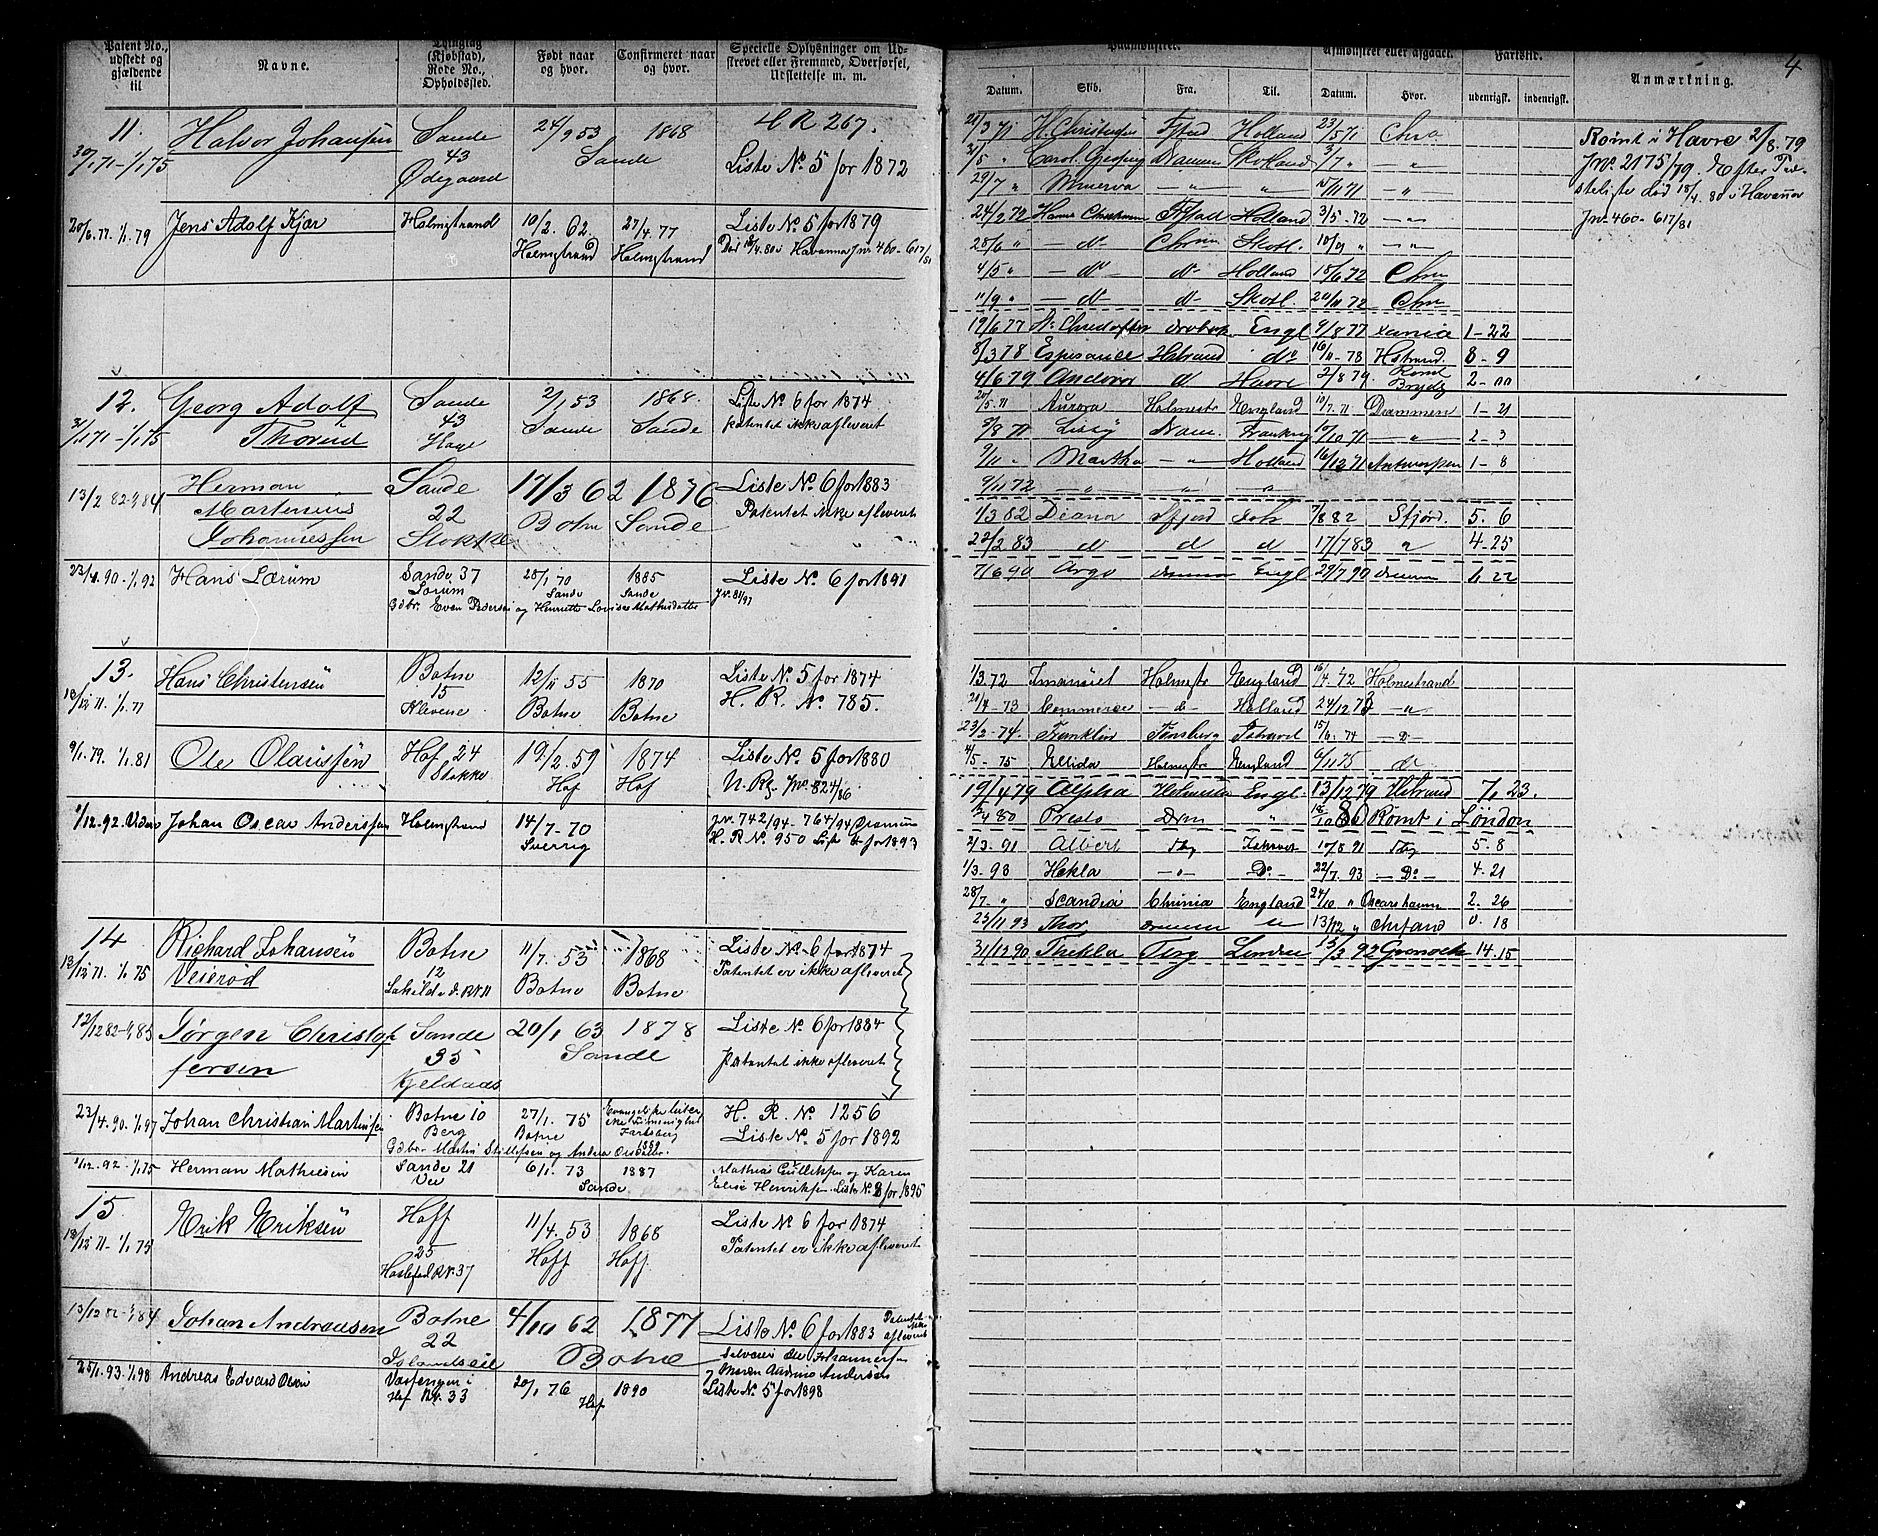 Patent No.,
udstedt og
gjældende
til
Navne.
Thinglag
(Kjøbstad),
Rode No.,
Opholdssted.
Født naar
og hvor.
Confirmeret naar
og hvor.
Specielle Oplysninger om Ud-
strevet eller Fremmed, Overførsel,
Udslettelse m. m.
11.
30/1 71 - 1/1 75
Halvor Johansen
Sande
43
Ødegaard
24/9 53
1868
Sande
H R 267.
Liste No 5 for 1872
20/6. 77. 1/1. 79
Jens Adolf Kjær
Holmestrand
10/2. 62.
Holmestrand
27/4. 77
Holmestrand
Liste No 5 for 1879
Død 18/4. 80 i Havanna jnr 460 - 617/81
12.
31/1 71 - 1/1 75
Georg Adolf
Sande
43
Hage
2/1 53
Sande
1868.
Sande
Liste No 6 for 1874
patentet ikke afleveret
13/2 82 - 1/1 84
Herman
Martenius
Johannessen
Sande
22
Stokke
17/3 62
Botne
1876
Sande
Liste No 6 for 1883
Patentet ikke afleveret
23/4. 90 - 1/1 92
Hans Lærum
Sande 37
Lørum
28/1 70
Sande
1885
Sande
Gdbr. Even Pedersen og Henriette Lovise Mathisdatter
Liste No 6 for 1891
13.
18/12 71. 1/1. 77
Hans Christensen
Botne
15
Klevene
12/11 55
Botne
1870
Botne
Liste No 5 for 1874
H. R. No 785.
9/1. 79. 1/1. 81
Ole Olaussen
Hof 24
Stokke
19/2. 59
Hof
1874
Hof
Liste No 5 for 1880
N. Rg. jnr. 824/86
1/12. 92. Uden
Johan Oscar Anderssen
Holmestrand
14/7 - 70
Sverrig
jnr. 742/94 - 764/94 Drammen
H. R. No. 950 Liste for 1893
14
18/12 71. 1/1 75
Richard Johansen
Veierød
Botne
12
11/7. 53
Botne
1868
Botne
Liste No 6 for 1874
Patentet er ikke afleveret
12/12 82 - 1/1 85
Jørgen Christof
fersen
Sande
35
Kjeldaas
20/1 63
1878
Sande
Liste No 6 for 1884
Patentet ikke afleveret
23/4. 90. 1/1 97
Johan Christian Martinsen
Botne 10
Berg
27/1. 75
Botne
H. R. No 1256
Liste No 5 for 1892
1/12. 92. 1/1. 75
Herman Mathiesen
Sande 21
Vei
6/1. 73
1887
Sande
Mathias Gulliksen og Karen
Elise Henriksen. Liste No 8 for 1895
15
18/12 71 - 1/1 75
Erik Eriksen
Hoff
25
11/4. 53
Hoff
1868
Hoff.
Liste No 6 for 1874
Patentet er ikke afleveret
13/12 82 - 1/1 84
Johan Andreasen
Botne
22
4/10 62
1877
Botne
Liste No 6 for 1883
Patentet ikke afleveret
25/1. 93. 1/1. 98
Andreas Edvard Olsen
Hof No. 33
20/1 76
1890
Hof
Liste No 5 for 1898
Paamønstret.
Afmønstret eller afgaaet.
Fartstid.
4
Datum.
Skib.
Fra.
Til.
Datum.
Hvor.
udenrigsk.
indenrigsk.
Anmærkning.
Holland 23/5 71 Chra
Rømt i Havre 2/8. 79
Jnr. 2175/79. Efter
død 18/4. 80 i Havanna
Jnr. 460 - 617/81
29/7 " Minerva — " — " 15/11 71 — " —
24/2 72 Holland 3/5. 72 — " —
25/6 " — do Skotl. 10/9 " — " —
4/5 " — do do Holland 15/6 72 Chra
11/9 " — do do Skotl. 20/11 72 Chra
19/6 77 Engl 9/8 77 1 - 22
8/3 78 Esperance Hstrand do 16/11 - 78 Hstrand. 8 - 9
4/6 79 Andover d Havre 2/8 79. Rømt
20/5. 71 Aurora Holmestr England 10/7. 71 Drammen 1 - 21
3/8 71 Lissy Dram. Frankrig 10/10 71 — " 2 - 3
9/11 " Martha — " Holland 16/12 71 Antwerpen 1 - 8
9/1 72 — " — " "
1/3 82 Diana Sfjord 7/8 82 Sfjord. 5. 6
22/2 83 d d d 17/7 83 " 4 - 25
7/6 90 Argo Drammen Engl 29/7 90 Drammen 1. 22
1/3. 72 Imanuel Holmestr England 16/4. 72 Holmestrand
21/4 - 73 Commerce — d — Holland 24/12 73 — " —
23/2 - 74. Franklin Tønsberg Ishavet 15/6. 74 — D —
4/5 - 75 Ellida Holmestr England 6/11 75 d
19/4 79 Alpha Holmestr Engl. 13/12 79 Hstrand 7. 23.
Presto Drm " Rømt i London
2/3. 91 Albert Tbg Ishavet 10/8 91 Tbg 5. 8
1/3. 93 Hekla — " — Do 22/7. 93 — Do — 4. 21
28/7. " Scandia Chinia England 24/10 " Oscarshamn 2. 26
23/11 93 Thor Drammen 13/12 " 0. 18
31/12 90 Thekla Tbrg London 15/3 92 14. 15